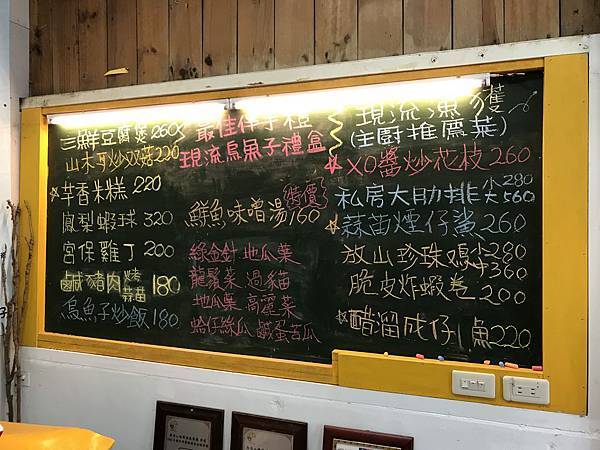 三鮮豆腐煲260
山木耳炒双菇220
芋香米糕 220
鳳梨蝦球 320
宮保雞丁 200
鹹豬肉 烤 蒜苗 180
烏魚子炒飯 180
最佳伴手禮
現流烏魚子禮盒
特價
鮮魚味噌湯160
綠金針 地瓜葉
龍鬚菜 過貓
地瓜葉 高麗菜
蛤仔絲瓜 鹹蛋苦瓜
現流漁獲
(主廚推薦菜)
XO醬炒花枝 260
私房大助排 小280 大560
蒜苗煙仔鯊 260
放山珍珠鷄 小280 中360
脆皮炸蝦卷 200
醋溜𩵚仔魚220